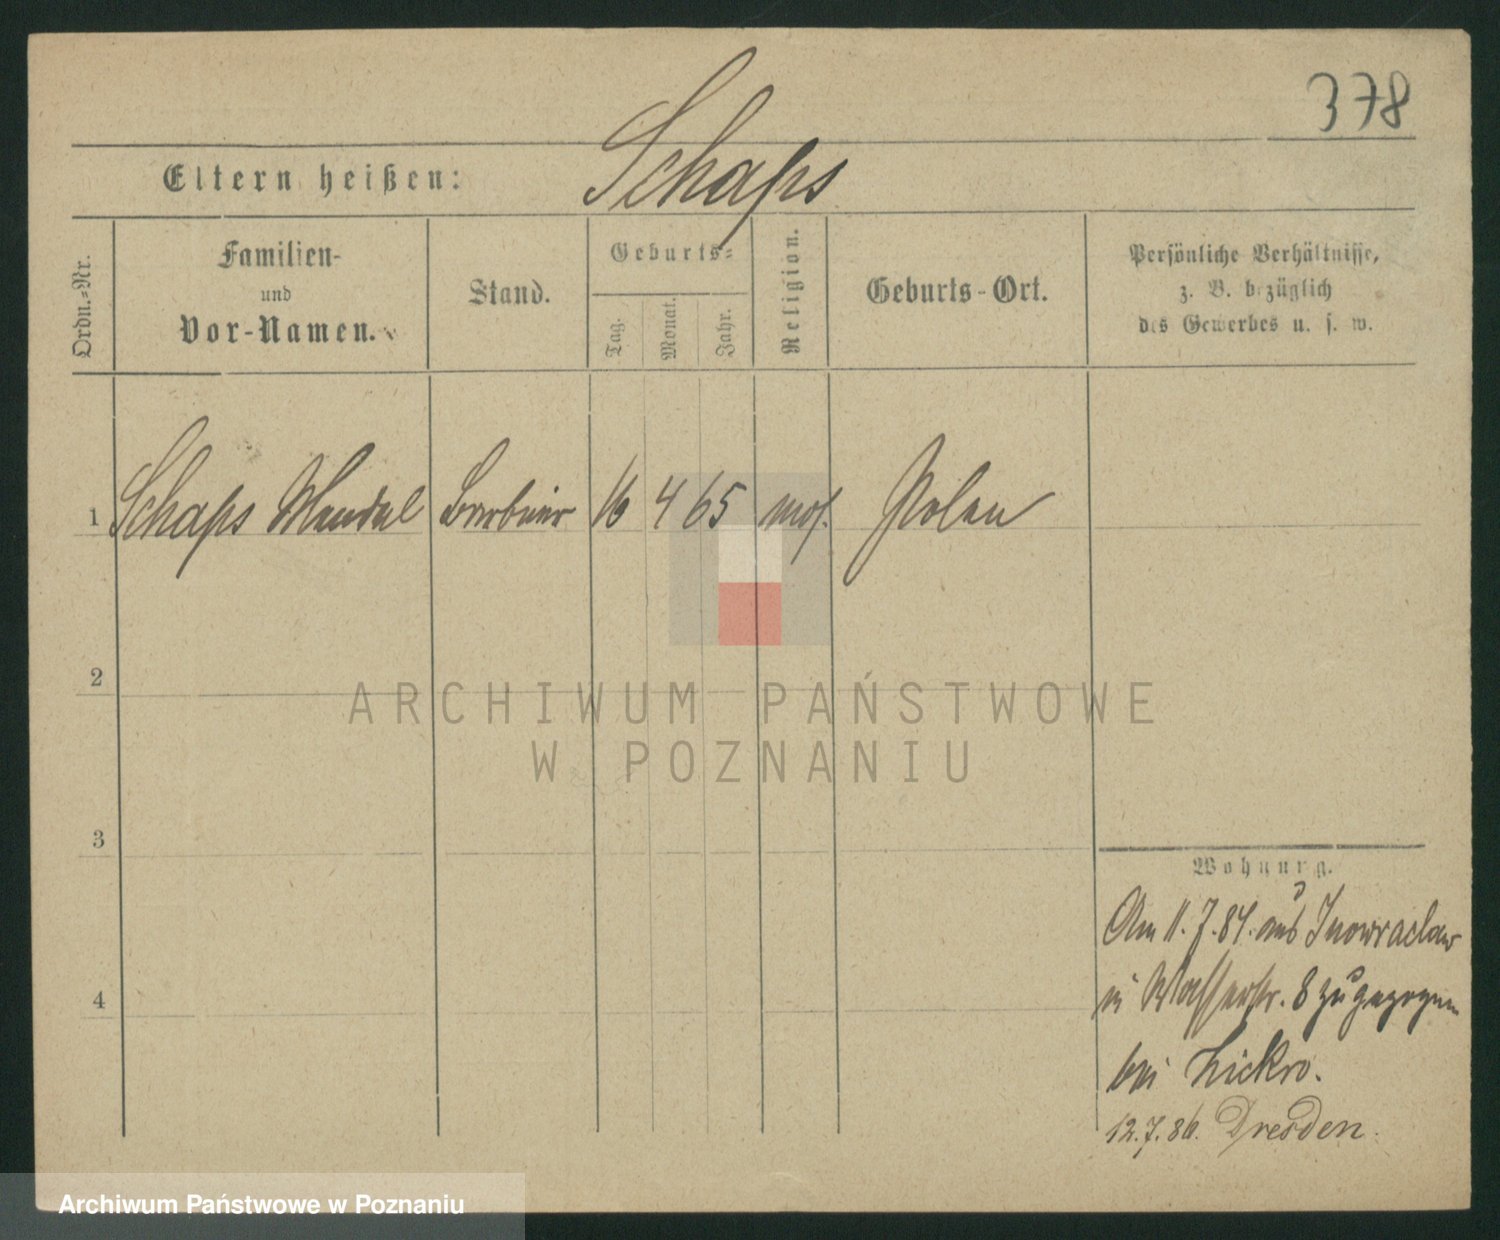 378
Schaps
Eltern heißen:
Ordn.=Nr.
Familien-
und
Vor-Namen.
Stand.
Geburts=
Tag.
Monat.
Jahr.
Religion.
Geburts-Ort.
Persönliche Verhältnisse,
z. B. bezüglich
des Gewerbes u. s. w.
1 Schaps Mendel Barbier 16 4 65 mos. Polen
2
ARCHIWUM PAŃSTWOWE
W POZNANIU
3
Wohnung.
Am 11.7.84. aus Inowraclaw
4
in Wasserstr. 8 zugezogen
bei
12.7.86. Dresden.
Archiwum Państwowe w Poznaniu